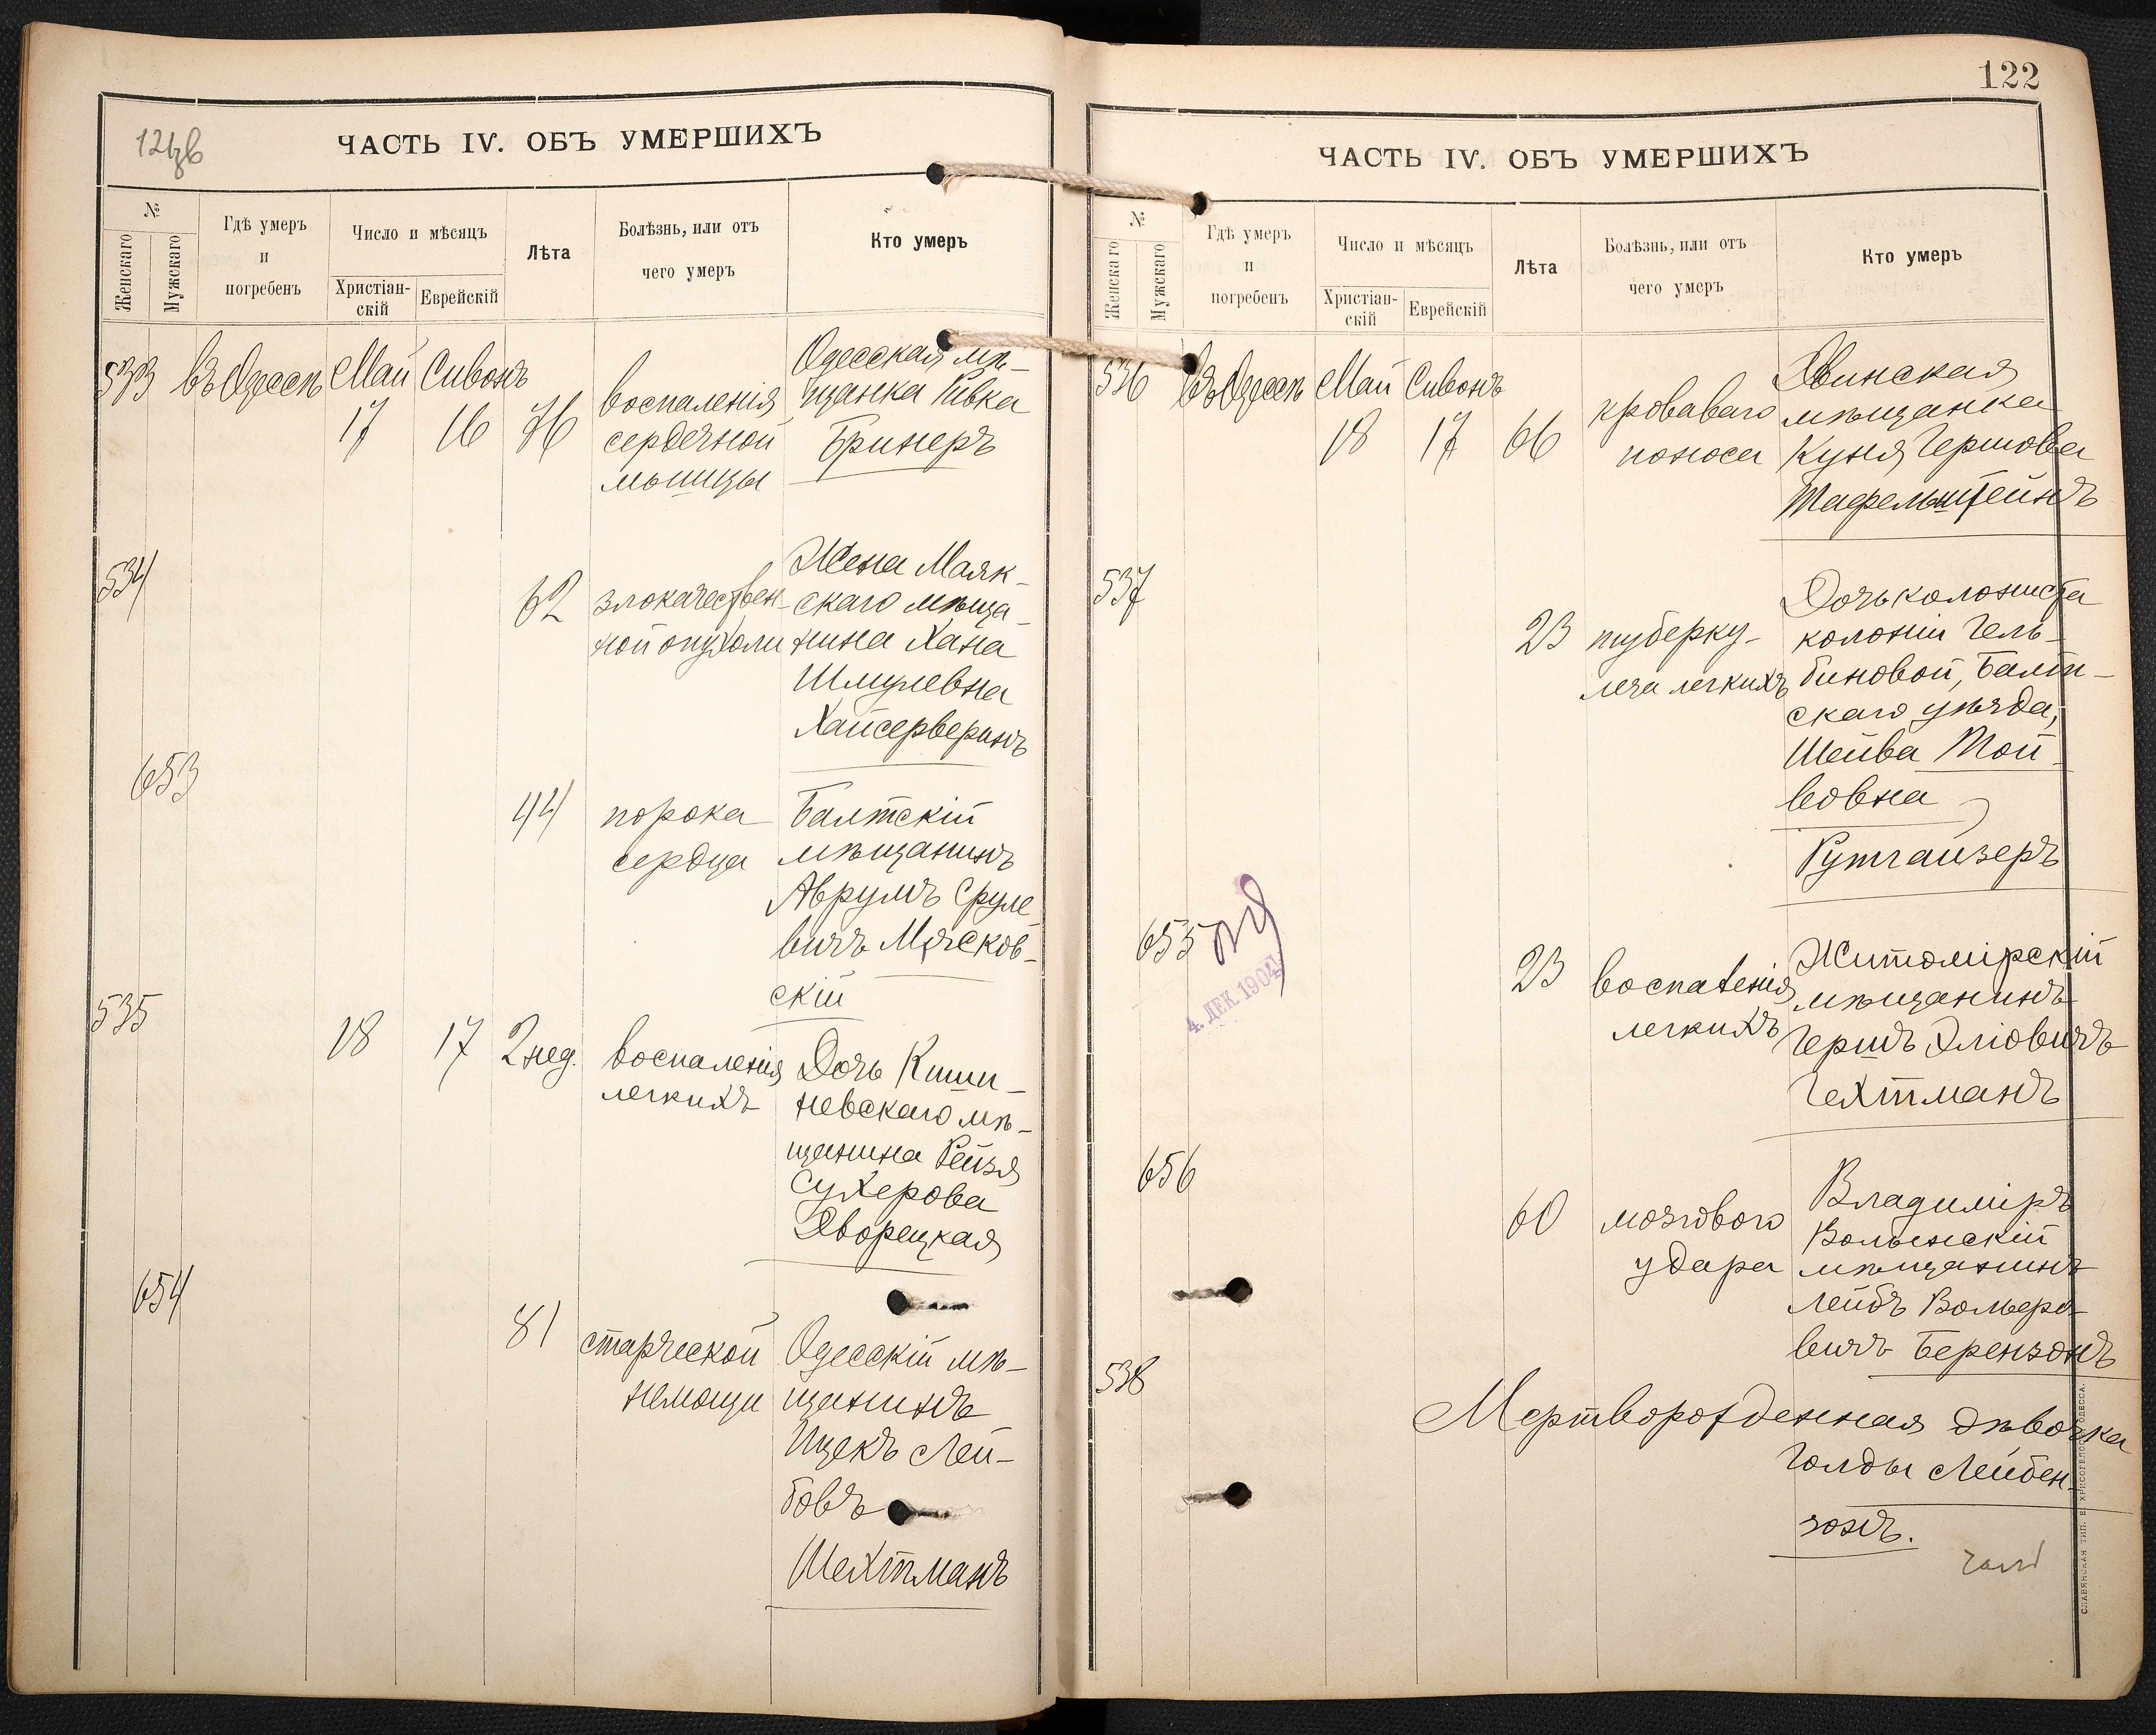 121 об
ЧАСТЬ IV. ОБЪ УМЕРШИХЪ
№
Женскаго
Мужскаго
Гдѣ умеръ
и
погребенъ
Число и мѣсяцъ
Христіан-
скій
Еврейскій
Лѣта
Болѣзнь, или отъ
чего умеръ
Кто умеръ
533 въ Одессѣ Май Сивонъ
17 16 76
воспаленія
сердечной
мышцы
Одесская мѣ-
щанка Ривка
Бринеръ
534
62
злокачествен-
ной опухоли
Жена Маяк-
скаго мѣща-
нина Хана
Шмулевна
Хайсерверинъ
653
44
порока
сердца
Балтскій
мѣщанинъ
Аврумъ Сруле
вичъ Мясков-
скій
535
18 17 2 нед.
воспаленія
легкихъ
Дочь Киши-
невскаго мѣ-
щанина Рейзя
Сухерова
Дворецкая
654
81
старческой
немощи
Одесскій мѣ-
щанинъ
Ицекъ Лей-
бовъ
Шехтманъ
122
ЧАСТЬ IV. ОБЪ УМЕРШИХЪ
№
Женскаго
Мужскаго
Гдѣ умеръ
и
погребенъ
Число и мѣсяцъ
Христіан-
скій
Еврейскій
Лѣта
Болѣзнь, или отъ
чего умеръ
Кто умеръ
536 въ Одессѣ Май Сивонъ
18 17 66
кроваваго
поноса
Двинская
мѣщанка
Куня Гершова
Тафельштейнъ
537
23
туберку-
леза легкихъ
Дочь колониста
колоніи Гель-
биновой, Балт-
скаго уѣзда,
Шейва Той-
вовна
Гутгайзеръ
655
4. ДЕК. 1904
23
воспаленія
легкихъ
Житомірскій
мѣщанинъ
Гершъ Эліовичъ
Гехтманъ
656
60
мозгового
удара
Владиміръ
Волынскій
мѣщанинъ
Лейбъ Вольфо-
вичъ Берензонъ
538
Мертворожденная дѣвочка
Голды Лейбен-
зонъ.
СЛАВЯНСКАЯ ТИП. Е. ХРИСОГЕЛОСЪ, ОДЕССА.